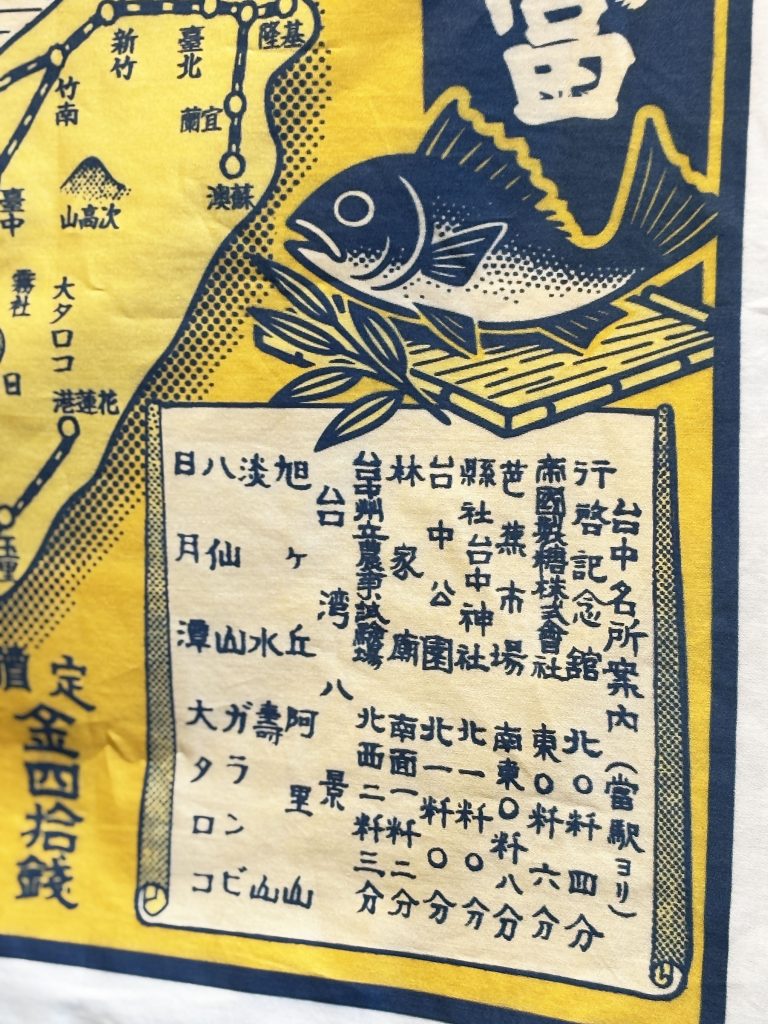 基隆
臺北
新竹
竹南
宜蘭
蘇澳
次高山
臺中
霧社
大タロコ
日
花蓮港
玉里
台中名所案内(當駅ヨリ)
行啓記念舘 北〇粁四分
帝國製糖株式會社 東〇粁六分
芭蕉市場 南東〇粁八分
縣社台中神社 北一粁〇分
台中公園 北一粁〇分
林家廟 南面一粁二分
台中州立農事試験場 北西二粁三分
台湾八景
旭ヶ丘 阿里山
淡水 壽山
八仙山 ガランビ
日月潭 大タロコ
定
金四拾錢